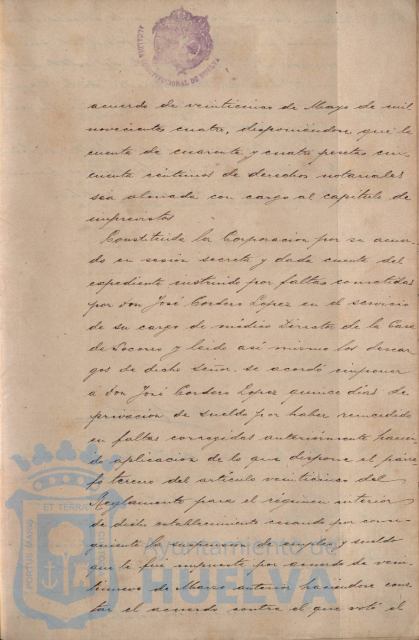 ALCALDIA CONSTITUCIONAL DE HUELVA
acuerdo de veinticinco de Mayo de mil
novecientos cuatro, disponiéndose que la
cuenta de cuarenta y cuatro pesetas cin-
cuenta céntimos de derechos notariales
sea abonada con cargo al capítulo de
imprevistos
Constituida la Corporacion por su acuer-
do en sesión secreta y dada cuenta del
expediente instruido por faltas cometidas
por Don José Cordero Lopez en el servicio
de su cargo de médico Director de la Casa
de Socorro y leido asi mismo los descar-
gos de dicho Señor. se acordó imponer
a Don José Cordero Lopez quince dias de
privacion de sueldo por haber reincidido
en faltas corregidas anteriormente hacien-
do aplicacion de lo que dispone el párra-
fo tercero del artículo veinticinco del
Reglamento para el régimen interior
de dicho establecimiento cesando por consi-
guiente la suspension de empleo y sueldo
que le fue impuesta por acuerdo de vein-
tinueve de Marzo anterior haciendose cons-
tar el acuerdo contra el que votó el
PORTUS MARIS ET TERRAE
Ayuntamiento de
HUELVA